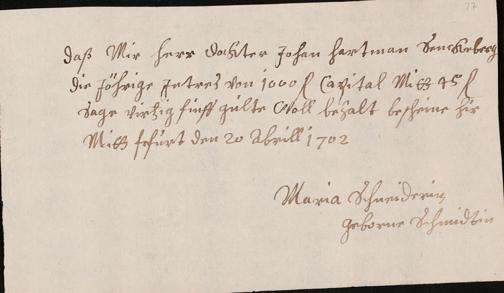 27
daß Mir herr docter Johan hartman Senckeberg
die Jöhrige Intres von 1000 f Capital Mitt 45 f
sage virtzig finff gulte Woll bezalt bescheine hir
Mitt frfurt den 20 Abrill 1702
Maria Schneiderin
geborne Schmidtin